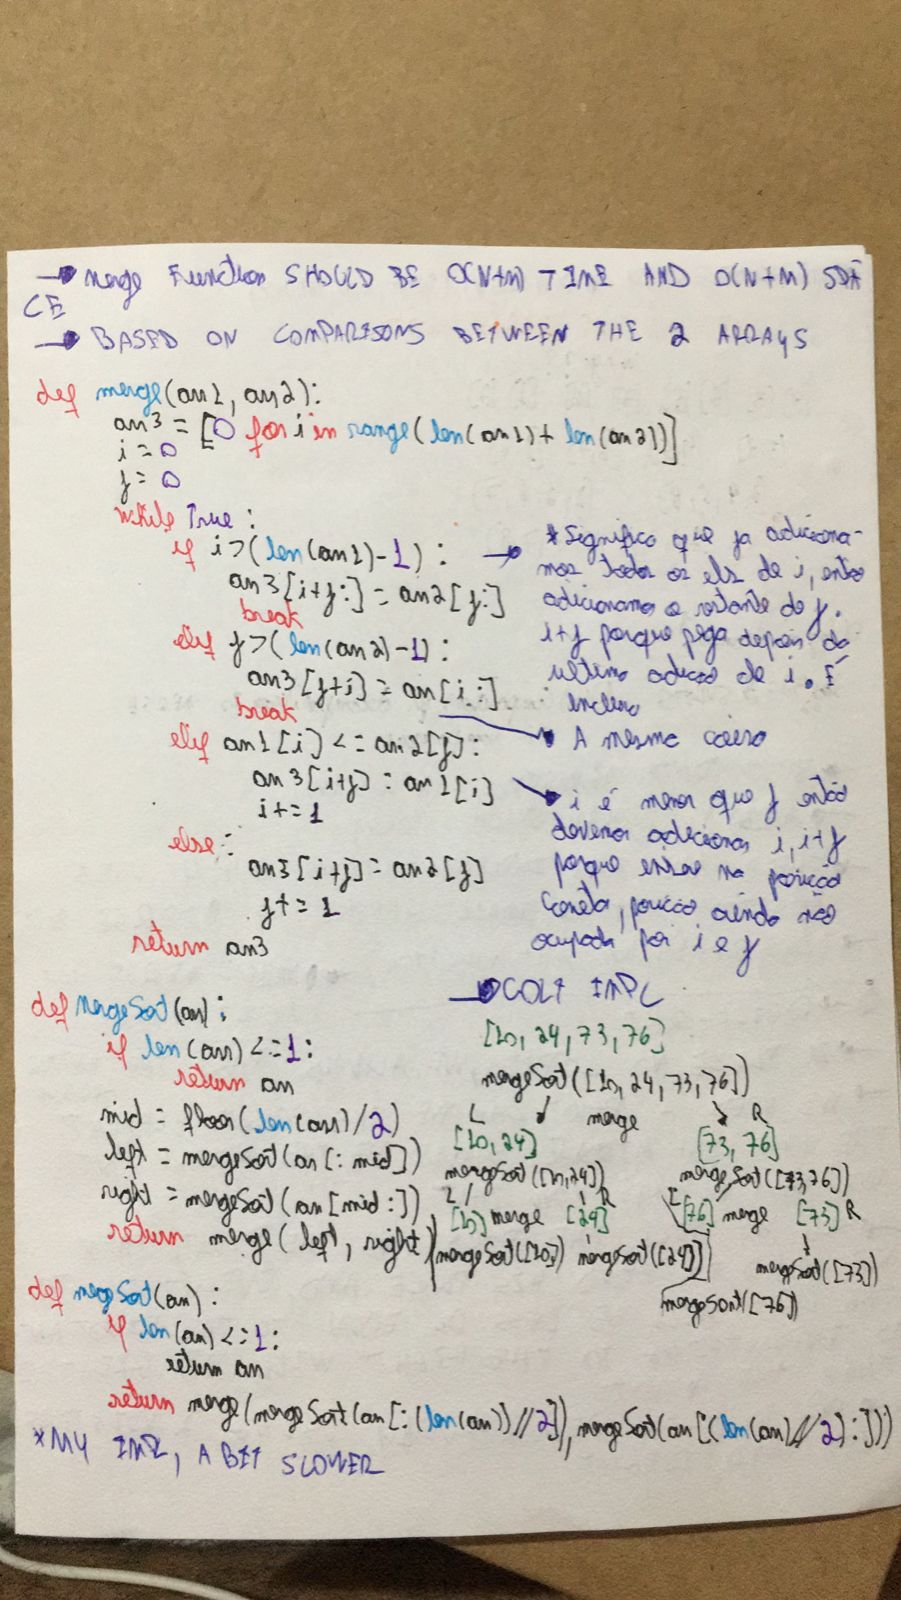 → Merge Function SHOULD BE O(N+M) TIME AND O(N+M) SPA
CE
→ BASED ON COMPARISONS BETWEEN THE 2 ARRAYS
def merge(arr1, arr2):
arr3 = [0 for i in range(len(arr1)+len(arr2))]
i = 0
j = 0
while True:
if i>(len(arr1)-1):
arr3[i+j:] = arr2[j:]
break
elif j>(len(arr2)-1):
arr3[j+i] = arr[i:]
break
elif arr1[i] <= arr2[j]:
arr3[i+j] = arr1[i]
i+=1
else:
arr3[i+j] = arr2[j]
j+=1
return arr3
→ *Significa que ja adiciona-
mos todos os els de i, entao
adicionamos o restante de j.
i+j porque pega depois da
ultima adicao de i. É
→ A mesma coisa
→ i é menor que j então
devemos adicionar i, i+j
porque na posição
correta, posicao ainda não
ocupada por i e j
def MergeSort(arr):
if len(arr) <=1:
return arr
mid = floor(len(arr)/2)
left = mergeSort(arr[:mid])
right = mergeSort(arr[mid:])
return merge(left, right)
→ COLT IMPL
[10, 24, 73, 76]
mergeSort([10, 24, 73, 76])
L merge R
[10, 24] [73, 76]
mergeSort([10,24]) mergeSort([73,76])
L R L
[10] merge [24] [76] merge [73] R
mergeSort([10]) mergeSort([24]) mergeSort([73])
mergeSort([76])
def mergeSort(arr):
if len(arr) <=1:
return arr
return merge(mergeSort(arr[:(len(arr))//2]), mergeSort(arr[(len(arr)//2):]))
*MY IMPL, A BIT SLOWER